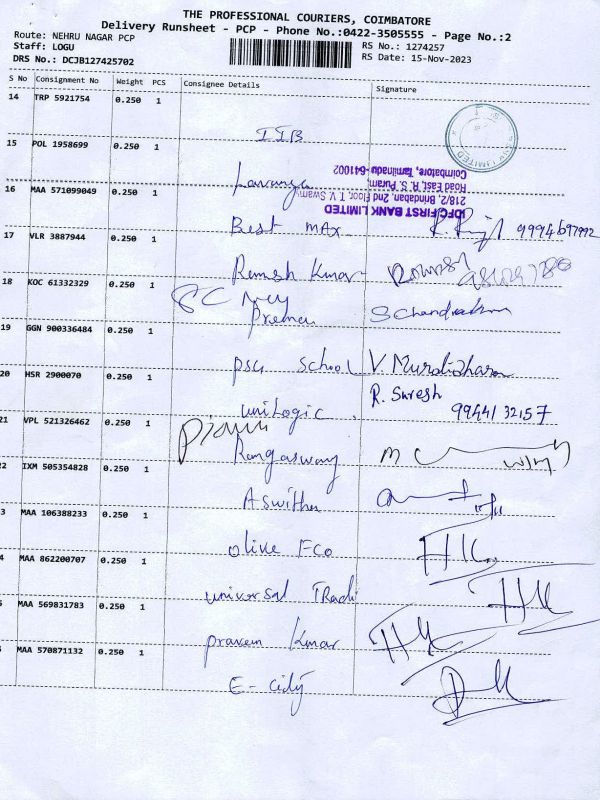 THE PROFESSIONAL COURIERS, COIMBATORE
Delivery Runsheet - PCP - Phone No.:0422-3505555 - Page No.:2
Route: NEHRU NAGAR PCP
RS No.: 1274257
Staff: LOGU
RS Date: 15-Nov-2023
DRS No.: DCJB127425702
S No Consignment No Weight PCS Consignee Details Signature
14 TRP 5921754 0.250 1
IIB
15 POL 1958699 0.250 1
Lavanya
IDFC FIRST BANK LIMITED
218/2, Brindaban, 2nd Floor, T. V. Swamy
Road East, R. S. Puram,
Coimbatore, Tamilnadu-641002
16 MAA 571099049 0.250 1
Best max 9994697992
17 VLR 3887944 0.250 1
Ramesh Kumar
18 KOC 61332329 0.250 1
Prema S Chandra
19 GGN 900336484 0.250 1
PSG School V. Muralidharan
20 HSR 2900070 0.250 1
R. Suresh
unilogic. 99441 32157
21 VPL 521326462 0.250 1
Rangaswamy
2 IXM 505354828 0.250 1
Aswitha
3 MAA 106388233 0.250 1
olive Eco
4 MAA 862200707 0.250 1
universal Tradi
MAA 569831783 0.250 1
praveen Kumar
MAA 570871132 0.250 1
E-city